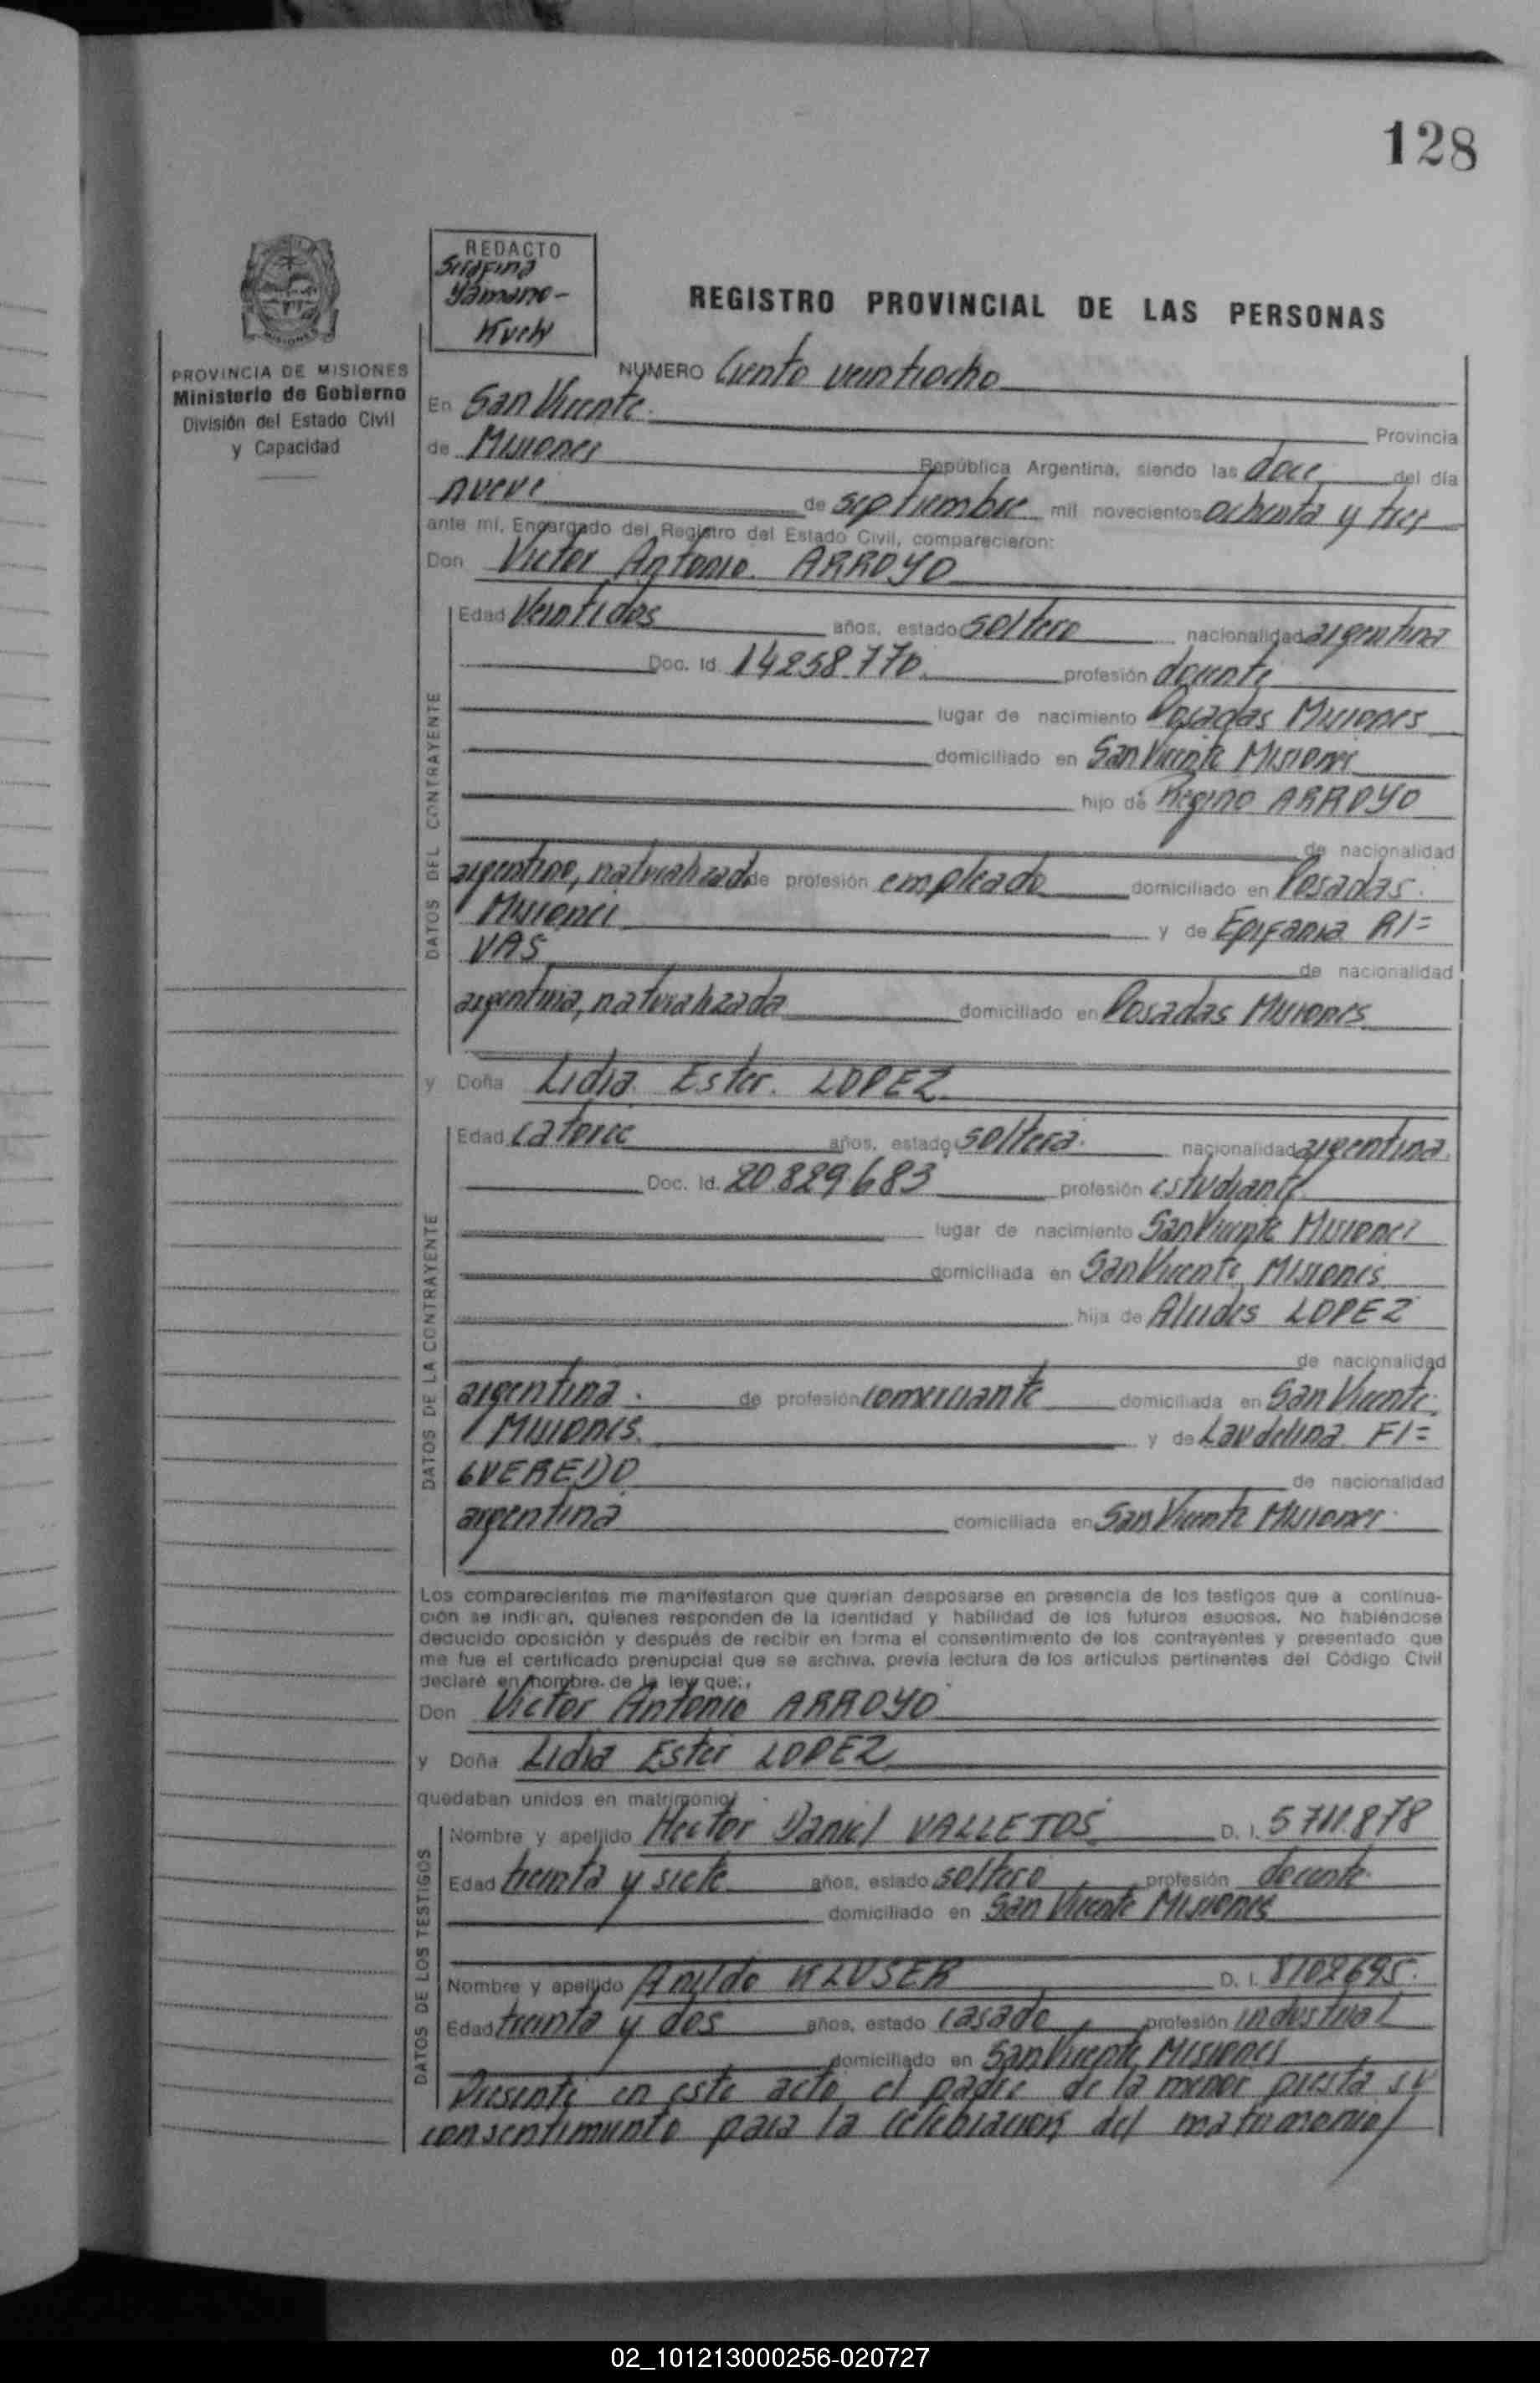 128
REDACTO
Serafina
Yamano-
Kuch
REGISTRO PROVINCIAL DE LAS PERSONAS
PROVINCIA DE MISIONES
Ministerio de Gobierno
División del Estado Civil
y Capacidad
NUMERO Ciento veintiocho
En San Vicente
Provincia
de Misiones República Argentina, siendo las doce del día
nueve de septiembre mil novecientos ochenta y tres
ante mí, Encargado del Registro del Estado Civil, comparecieron:
Don Victor Antonio ARROYO
DATOS DEL CONTRAYENTE
Edad Veintidos años, estado soltero nacionalidad argentina
Doc. Id. 14258.770 profesión docente
lugar de nacimiento Posadas Misiones
domiciliado en San Vicente Misiones
hijo de Regino ARROYO
de nacionalidad
argentino, naturalizado de profesión empleado domiciliado en Posadas
Misiones y de Epifania RI=
VAS de nacionalidad
argentina, naturalizada domiciliado en Posadas Misiones
y Doña Lidia Ester LOPEZ
DATOS DE LA CONTRAYENTE
Edad catorce años, estado soltera nacionalidad argentina
Doc. Id. 20.829.683 profesión estudiante
lugar de nacimiento San Vicente Misiones
domiciliada en San Vicente Misiones
hija de Alcides LOPEZ
de nacionalidad
argentina de profesión comerciante domiciliada en San Vicente
Misiones y de Laudelina FI=
GUEREDO de nacionalidad
argentina domiciliada en San Vicente Misiones
Los comparecientes me manifestaron que querían desposarse en presencia de los testigos que a continua-
ción se indican, quienes responden de la identidad y habilidad de los futuros esposos. No habiéndose
deducido oposición y después de recibir en forma el consentimiento de los contrayentes y presentado que
me fue el certificado prenupcial que se archiva, previa lectura de los artículos pertinentes del Código Civil
declaré en nombre de la ley que:
Don Victor Antonio ARROYO
y Doña Lidia Ester LOPEZ
quedaban unidos en matrimonio
DATOS DE LOS TESTIGOS
Nombre y apellido Hector Daniel VALLETOS D. I. 5711.878
Edad treinta y siete años, estado soltero profesión docente
domiciliado en San Vicente Misiones
Nombre y apellido Anildo KLUSER D. I. 8102695
Edad treinta y dos años, estado casado profesión industrial
domiciliado en San Vicente Misiones
Presente en este acto el padre de la menor presta su
consentimiento para la celebracion del matrimonio
02_101213000256-020727